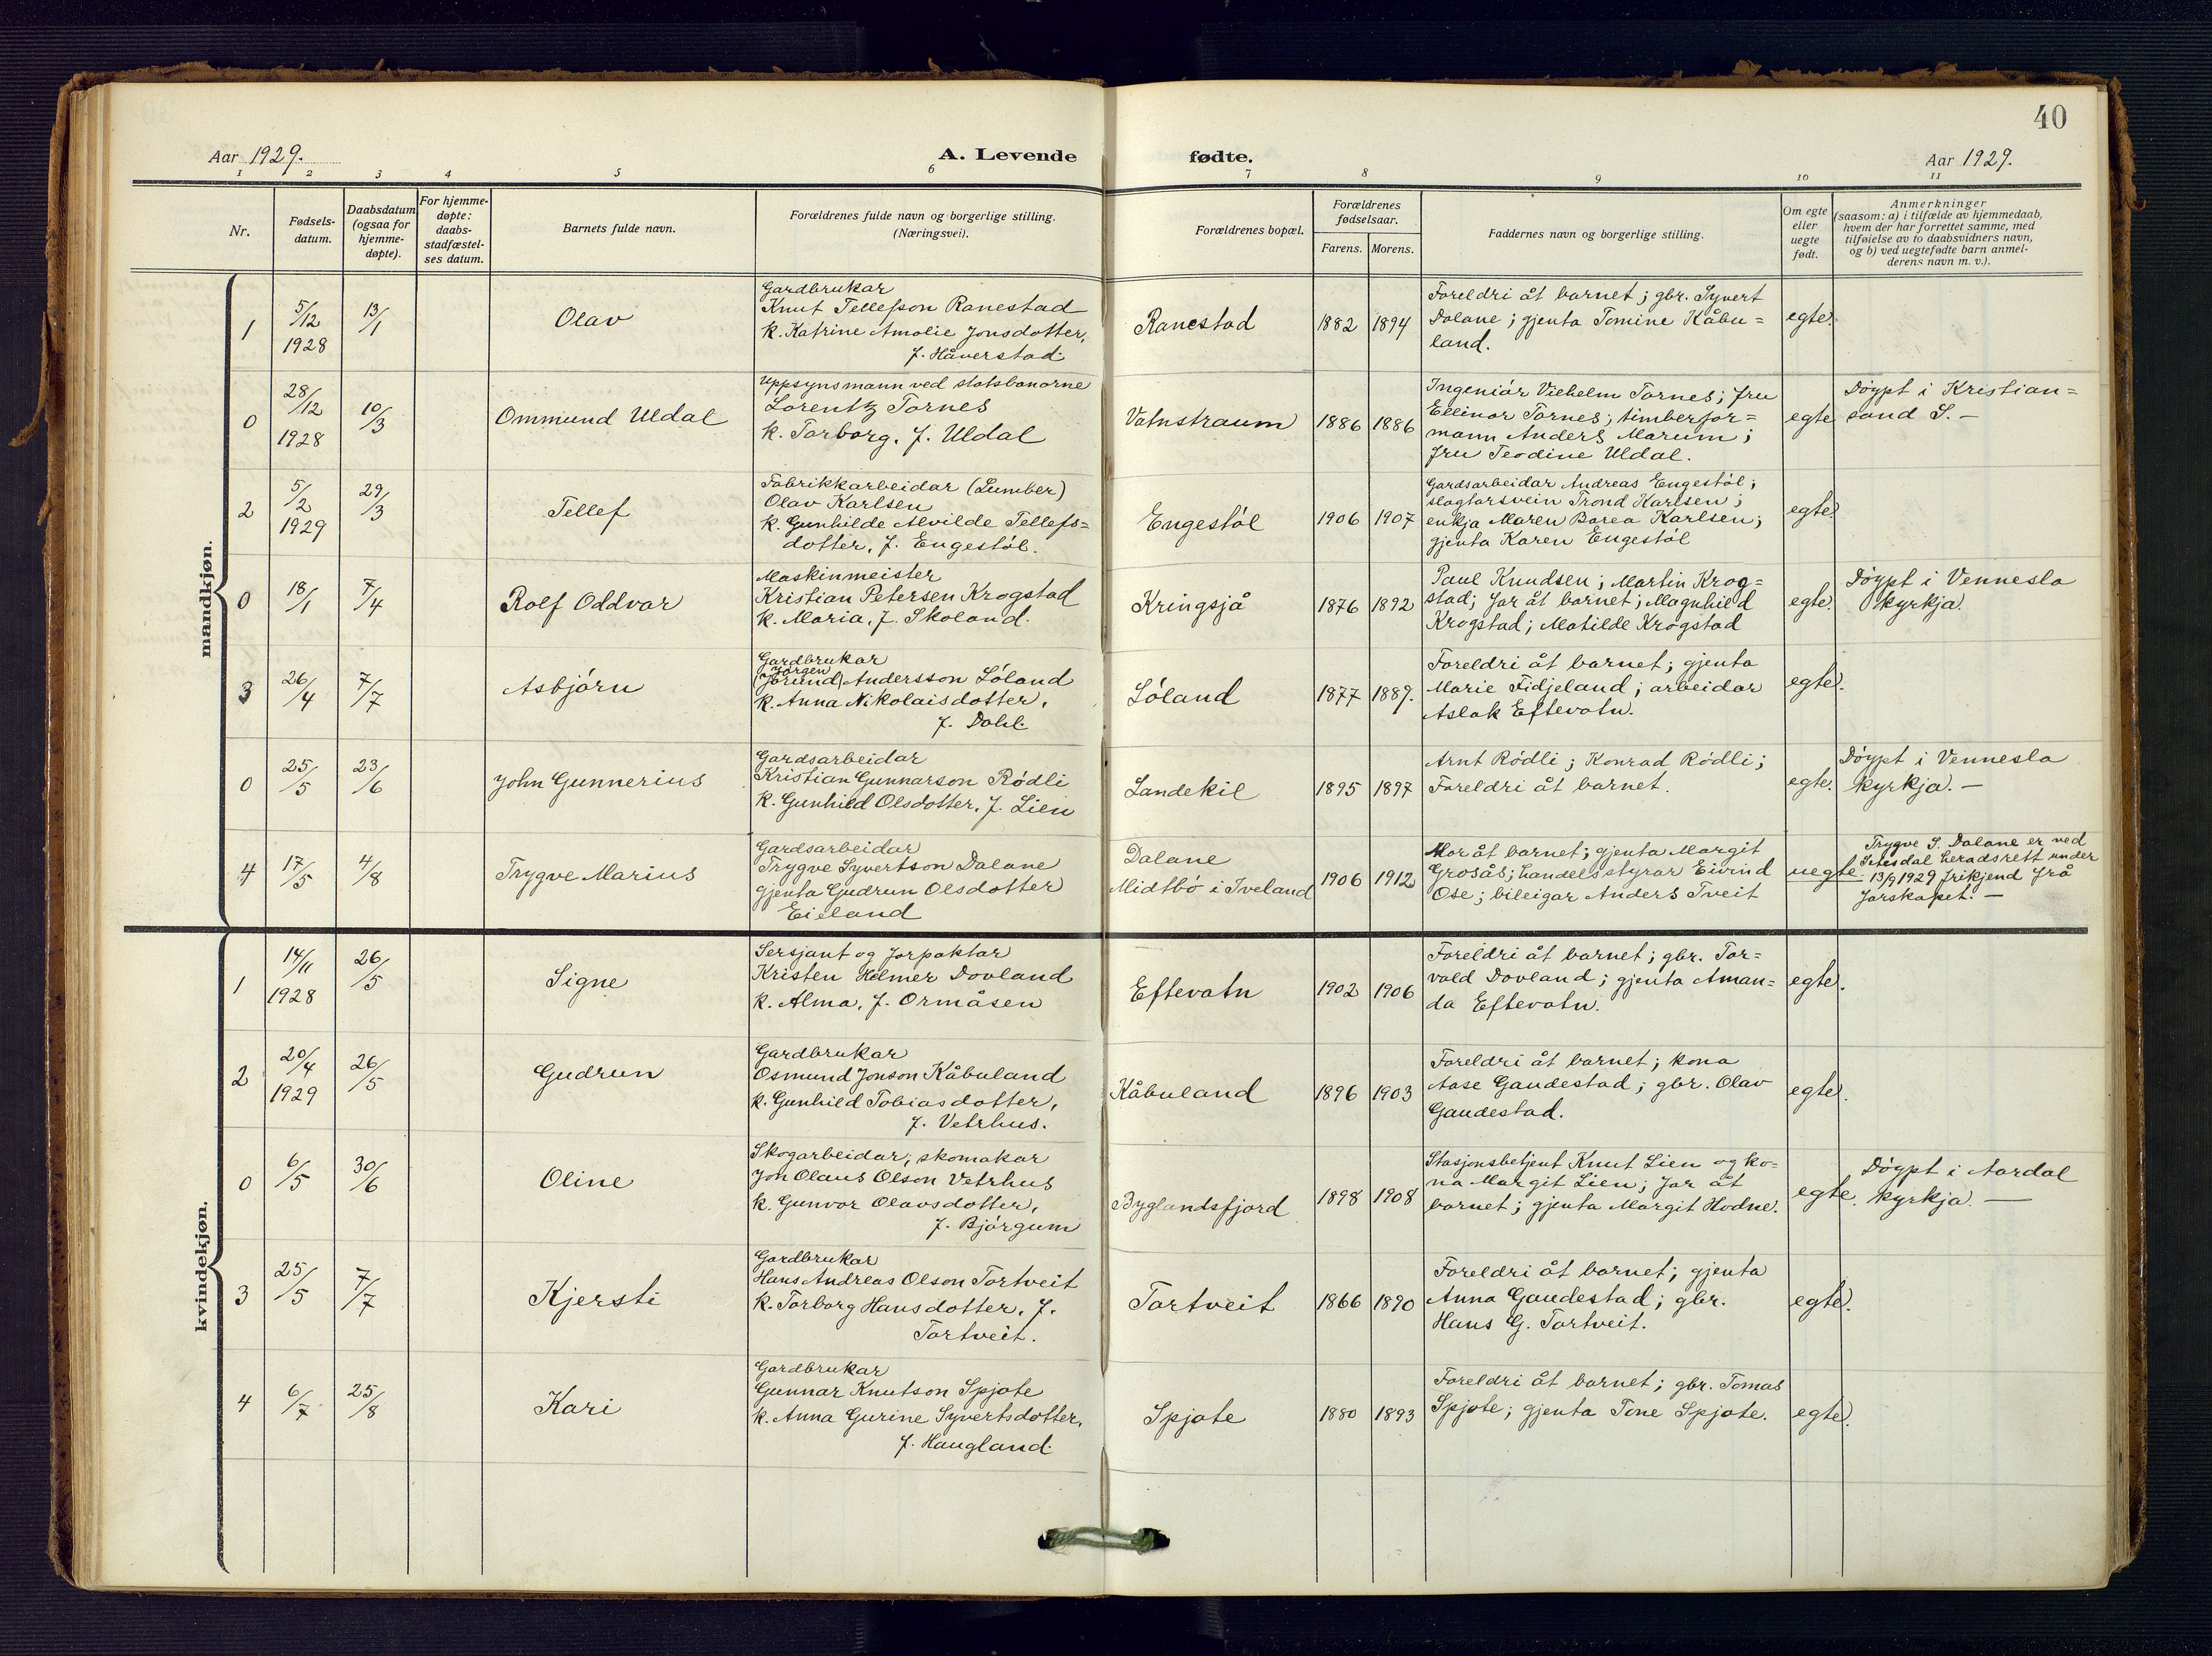 40
Aar 1929.
A. Levende
fødte.
Aar 1929.
1 2 3 4 5 6 7 8 9 10 11
Nr.
Fødsels-
datum.
Daabsdatum
(ogsaa for
hjemme-
døpte).
For hjemme-
døpte:
daabs-
stadfæstel-
ses datum.
Barnets fulde navn.
Forældrenes fulde navn og borgerlige stilling.
(Næringsvei).
Forældrenes bopæl.
Forældrenes
fødselsaar.
Farens. Morens.
Faddernes navn og borgerlige stilling.
Om egte
eller
uegte
født.
Anmerkninger
(saasom: a) i tilfælde av hjemmedaab,
hvem der har forrettet samme, med
tilføielse av to daabsvidners navn,
og b) ved uegtefødte barn anmel-
derens navn m. v.).
mandkjøn.
1
5/12
1928
13/1
Olav
Gardbrukar
Knut Tellefson Ranestad
k. Katrine Amalie Jonsdotter,
f. Håverstad.
Ranestad
1882
1894
Foreldri åt barnet; gbr. Syvert
Dalane; gjenta Tomine Kåbu=
land.
egte.
0
28/12
1928
10/3
Ommund Uldal
Uppsynsmann ved statsbanorne
Lorentz Tornes
k. Torborg, f. Uldal
Vatnstraum
1886
1886
Ingeniør Vilhelm Tornes; fru
Ellinor Tornes; timberfor=
mann Anders Marum;
fru Teodine Uldal.
egte
Døypt i Kristian=
sand S. —
2
5/2
1929
29/3
Tellef
Fabrikkarbeidar (Lumber)
Olav Karlsen
k. Gunhilde Alvilde Tellefs=
dotter, f. Engestøl.
Engestøl
1906
1907
Gardsarbeidar Andreas Engestøl;
slagtarsvein Trond Karlsen;
enkja Maren Barea Karlsen;
gjenta Karen Engestøl
egte.
0
18/1
7/4
Rolf Oddvar
Maskinmeister
Kristian Petersen Krogstad
k. Maria, f. Skoland.
Kringsjå
1876
1892
Paul Knudsen; Martin Krog=
stad; far åt barnet; Magnhild
Krogstad; Matilde Krogstad
egte.
Døypt i Vennesla
kyrkja.
3
26/4
7/7
Asbjørn
Gardbrukar
Jørgen
(Jørund) Andersson Løland
k. Anna Nikolaisdotter,
f. Dahl.
Løland
1877
1889.
Foreldri åt barnet; gjenta
Marie Fidjeland; arbeidar
Aslak Eftevatn.
egte.
0
25/5
23/6
John Gunnerius
Gardsarbeidar
Kristian Gunnarson Rødli
k. Gunhild Olsdotter, f. Lien
Landekil
1895
1897
Arnt Rødli; Konrad Rødli;
Foreldri åt barnet.
egte.
Døypt i Vennesla
kyrkja. —
4
17/5
4/8
Trygve Marius
Gardsarbeidar
Trygve Syvertson Dalane
gjenta Gudrun Olsdotter
Eieland
Dalane
Midtbø i Iveland
1906
1912
Mor åt barnet; gjenta Margit
Grosås; handelsstyrar Eivind
Ose; bileigar Anders Tveit
uegte.
Trygve S. Dalane er ved
Setesdal heradsrett under
13/9 1929 frikjend frå
farskapet. —
kvindekjøn.
1
14/11
1928
26/5
Signe
Sersjant og forpaktar
Kristen Helmer Dovland
k. Alma, f. Ormåsen
Eftevatn
1902
1906
Foreldri åt barnet; gbr. Tor=
vald Dovland; gjenta Aman=
da Eftevatn.
egte.
2
20/4
1929
26/5
Gudrun
Gardbrukar
Osmund Jonson Kåbuland
k. Gunhild Tobiasdotter,
f. Vetrhus.
Kåbuland
1896
1903
Foreldri åt barnet; kona
Aase Gaudestad; gbr. Olav
Gaudestad.
egte.
0
6/5
30/6
Oline
Skogarbeidar, skomakar
Jon Olaus Olson Vetrhus
k. Gunvor Olavsdotter,
f. Bjørgum
Byglandsfjord
1898
1908
Stasjonsbetjent Knut Lien og ko=
na Margit Lien; far åt
barnet; gjenta Margit Hodne.
egte.
Døypt i Aardal
kyrkja. —
3
25/5
7/7
Kjersti
Gardbrukar
Hans Andreas Olson Tortveit
k. Torborg Hansdotter, f.
Tortveit.
Tortveit
1866
1890
Foreldri åt barnet; gjenta
Anna Gaudestad; gbr.
Hans G. Tortveit.
egte.
4
6/7
25/8
Kari
Gardbrukar
Gunnar Knutson Spjote
k. Anna Gurine Syvertsdotter,
f. Haugland.
Spjote
1880
1893
Foreldri åt barnet; gbr. Tomas
Spjote; gjenta Tone Spjote.
egte.